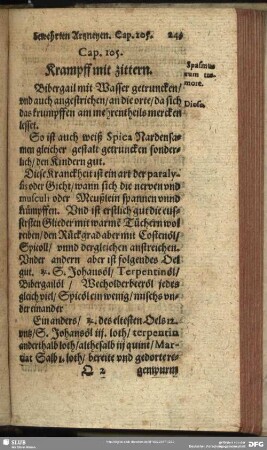 bewehrten Artzneyen. Cap. 105. 249
Cap. 105.
Krampff mit zittern.
Spasmus
cum tre-
more.
Bibergail mit Wasser getruncken/
vnd auch angestrichen/ an die orte/ da sich
das krumpffen am mehrentheils mercken
lesset.
Diosc.
So ist auch weiß Spica Nardensa-
men gleicher gestalt getruncken sonder-
lich/ den Kindern gut.
Diese Kranckheit ist ein art der paraly-
sis oder Gicht/ wann sich die nerven vnd
musculi oder Meußlein spannen vnnd
krümpffen. Vnd ist erstlich gut die eus-
sersten Glieder mit warmē Tüchern wol
reiben/ den Rückgrad aber mit Costenöl/
Spicöl/ vnnd dergleichen anstreichen.
Vnder andern aber ist folgendes Oel
gut. ℞. S. Johansöl/ Terpentinöl/
Bibergailöl/ Wecholderberöl jedes
gleich viel/ Spicöl ein wenig/ mischs vn-
der einander
Ein anders/ ℞. des eltesten Oels
S. Johansöl iij. loth/ terpentin
anderthalb loth/ altheesalb ij quint/ Mar-
Salb 1. loth/ bereite vnd gedörte re-
Q 2 genwürm
SLUB
DFG